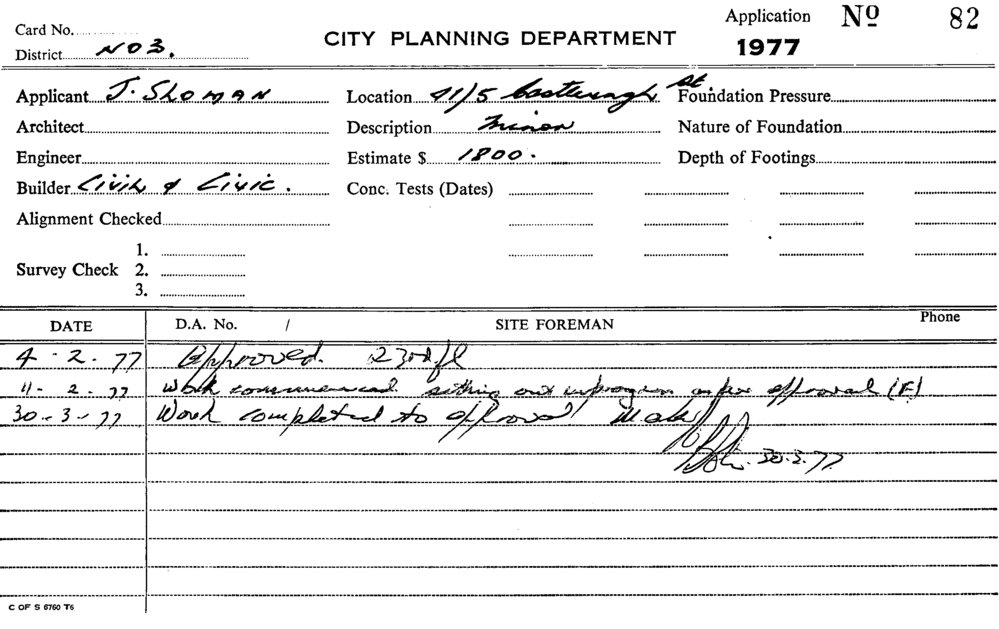 Card No.
District NO 3.
CITY PLANNING DEPARTMENT
Application Nº 82
1977
Applicant J. SLOMAN
Location 41/5 Castlereagh St.
Foundation Pressure
Architect
Description Minor
Nature of Foundation
Engineer
Estimate $ 1800.
Depth of Footings
Builder Civil & Civic.
Conc. Tests (Dates)
Alignment Checked
Survey Check
1.
2.
3.
DATE D.A. No. / SITE FOREMAN Phone
4-2-77 Approved. 23rd fl
11-2-77 Work commenced setting out in progress as per approval (F)
30-3-77 Work completed to approval
30.3.77
C OF S 6760 T6